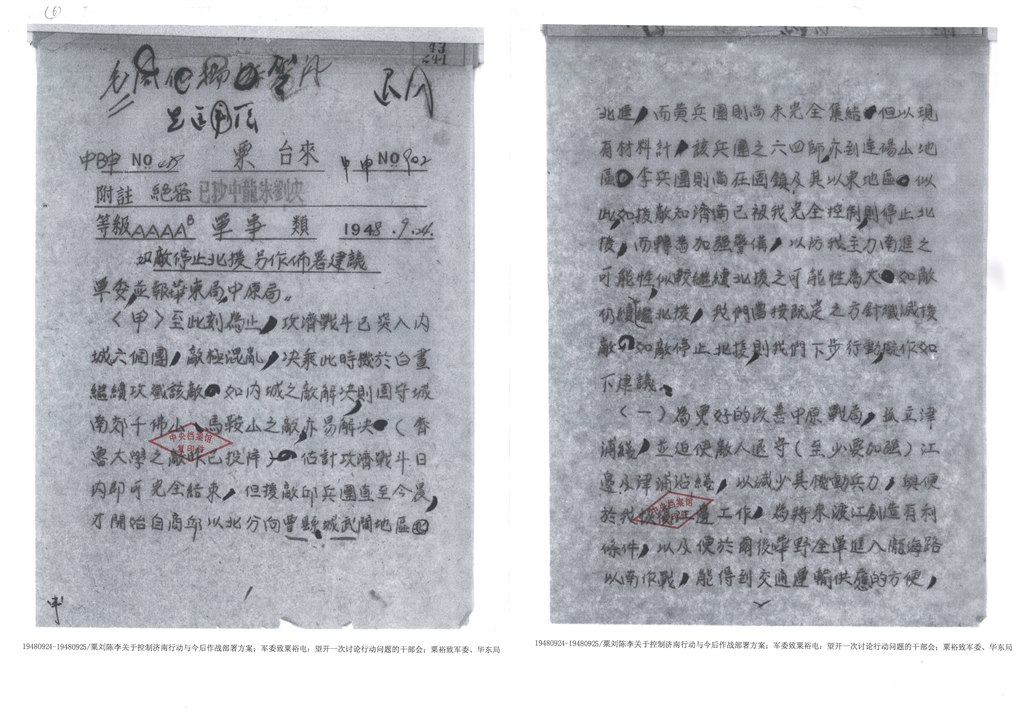 (6)
43
241
粟 台來
中申 NO 902
附註 絕密 已抄中龍朱劉史
等級AAAAᴮ 軍事 類 1948.9.24.
如敵停止北援另作佈署建議
軍委並報華東局中原局。
〈甲〉至此刻為止，攻濟戰斗已突入內
城六個團，敵極混亂，决乘此時機於白晝
繼續攻殲該敵。如內城之敵解决則固守城
南郊千佛山、馬鞍山之敵亦易解决。（齊
魯大學之敵昨已投降）。估計攻濟戰斗日
內即可完全結束，但援敵邱兵團直至今晨，
才開始自商邱以北分向曹縣城武間地區
北進，而黃兵團則尚未完全集結。但以現
有材料計，該兵團之六四師亦到達碭山地
區。李兵團則尚在固鎮及其以東地區。似
此如援敵知濟南已被我完全控制則停止北
援，而轉為加强警備，以防我主力南進之
可能性似較繼續北援之可能性為大。如敵
仍續繼北援，我們當按既定之方針殲滅援
敵。如敵停止北援則我們下步行動擬作如
下建議。
（一）為更好的改善中原戰局，孤立津
浦綫，並迫使敵人退守（至少要加强）江
邊及津浦沿綫，以減少其機動兵力，與便
於我恢復江邊工作，為將來渡江創造有利
條件，以及便於爾後華野全軍進入隴海路
以南作戰，能得到交通運輸供應的方便，
中央档案馆
复印件
19480924-19480925/粟刘陈李关于控制济南行动与今后作战部署方案；军委致粟裕电：望开一次讨论行动问题的干部会；粟裕致军委、华东局
19480924-19480925/粟刘陈李关于控制济南行动与今后作战部署方案；军委致粟裕电：望开一次讨论行动问题的干部会；粟裕致军委、华东局